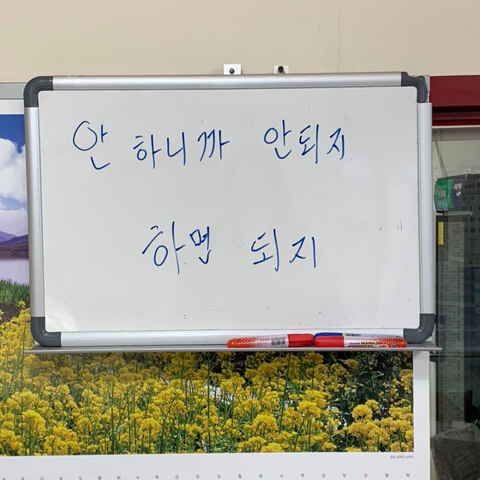 안 하니까 안되지
하면 되지